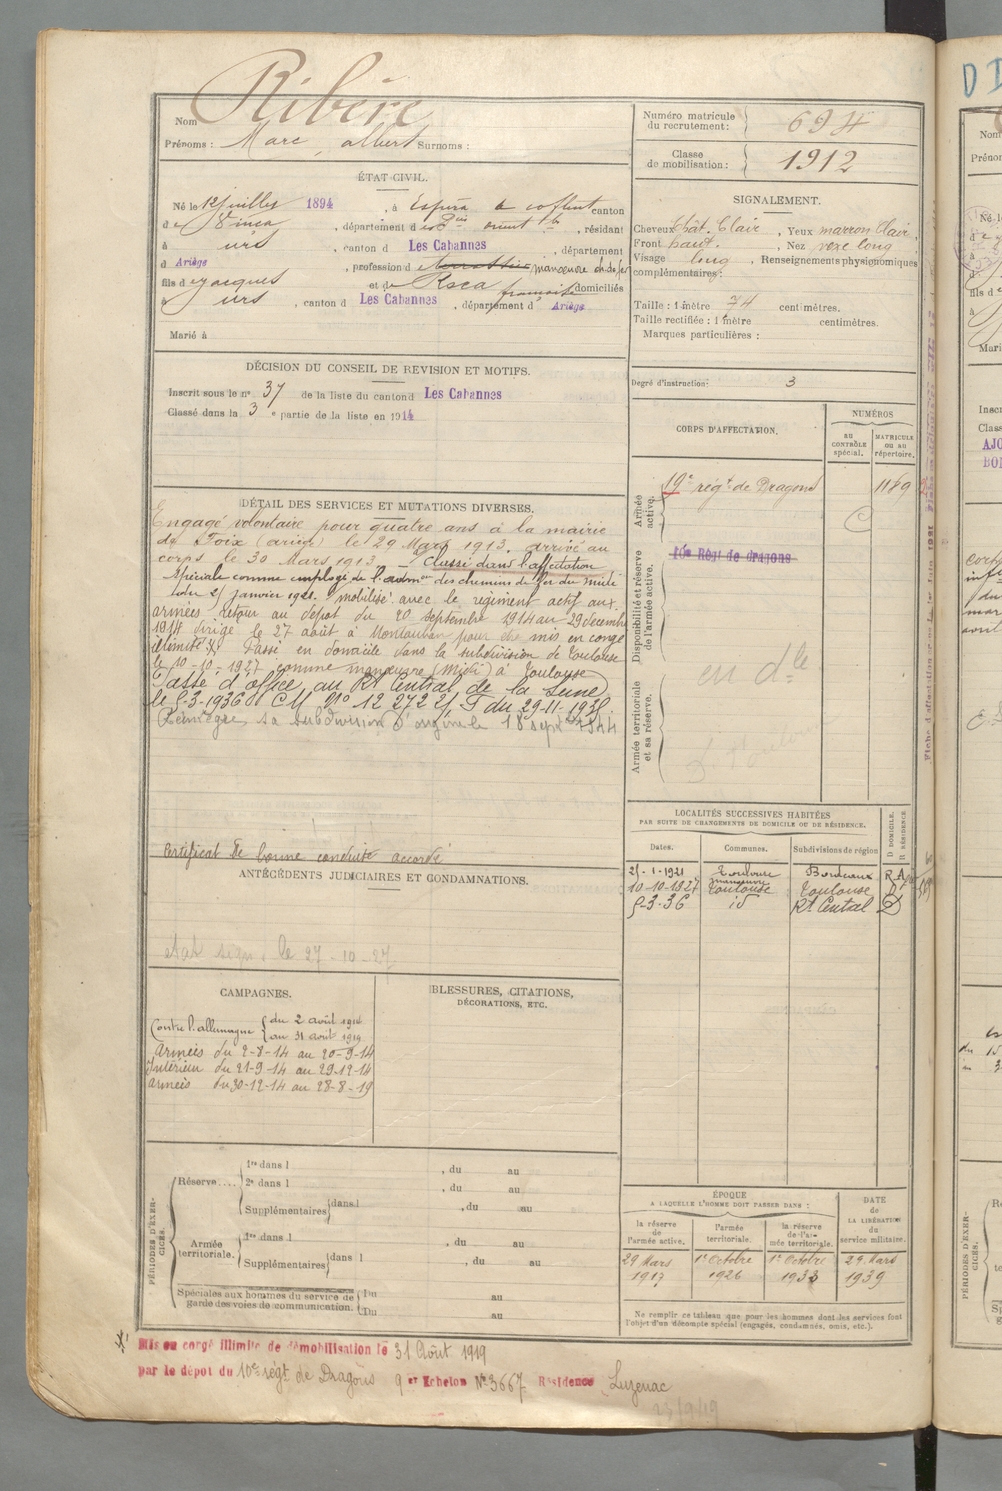 Nom Ribère
Prénoms : Marc, albert Surnoms :
Numéro matricule du recrutement : 694
Classe de mobilisation : 1912
ÉTAT CIVIL.
Né le 12 juillet 1894, à Espira de conflent canton
de Vinça, département des Pées orient les, résidant
à urs, canton d Les Cabannes, département
d Ariège, profession d manœuvre ch de fer
fils de jacques et de Roca françoise domiciliés
à urs, canton d Les Cabannes, département d' Ariège
Marié à
SIGNALEMENT.
Cheveux chât. Clair, Yeux marron Clair,
Front haut. , Nez long
Visage long, Renseignements physionomiques
complémentaires :
Taille : 1 mètre 74 centimètres.
Taille rectifiée : 1 mètre centimètres.
Marques particulières :
Degré d'instruction : 3
DÉCISION DU CONSEIL DE REVISION ET MOTIFS.
Inscrit sous le n° 37 de la liste du canton d Les Cabannes
Classé dans la 3 e partie de la liste en 1914
CORPS D'AFFECTATION.
NUMÉROS
AU CONTRÔLE spécial.
MATRICULE OU AU répertoire.
Armée active.
19e régt de Dragons 1169
Disponibilité et réserve de l'armée active.
10e Régt de dragons
Armée territoriale et sa réserve.
en dle
DÉTAIL DES SERVICES ET MUTATIONS DIVERSES.
Engagé volontaire pour quatre ans à la mairie
de Foix (ariège) le 29 Mars 1913. arrivé au
corps le 30 Mars 1913 Classé dans l'affectation
spéciale comme employé de l'admon des chemins de fer du midi
du 25 janvier 1921. mobilisé avec le régiment actif aux
armées retour au dépôt du 20 septembre 1914 au 29 décembre
1914 dirigé le 27 août à Montauban pour être mis en congé
illimité. Passé en domicile dans la subdivision de Toulouse
le 10-10-1927 comme manœuvre (Midi) à Toulouse
Passé d'office au Rt Central de la Seine
le 5-3-1936 CM N° 12272 du 29-11-1935
Réintègre sa subdivision d'origine le 18 septbre 1944
Certificat de bonne conduite accordé
ANTÉCÉDENTS JUDICIAIRES ET CONDAMNATIONS.
état sign. le 27-10-27
LOCALITÉS SUCCESSIVES HABITÉES
PAR SUITE DE CHANGEMENTS DE DOMICILE OU DE RÉSIDENCE.
Dates. Communes. Subdivisions de région D DOMICILE. R RÉSIDENCE
25-1-1921 Toulouse Bordeaux R
manœuvre
10-10-1927 Toulouse Toulouse D
5-3-36 id Rt Central D
CAMPAGNES.
Contre l'allemagne { du 2 août 1914
au 31 août 1919
Armées du 2-8-14 au 20-9-14
Intérieur du 21-9-14 au 29-12-14
armées du 30-12-14 au 28-8-19
BLESSURES, CITATIONS,
DÉCORATIONS, ETC.
PÉRIODES D'EXERCICES.
Réserve....
1re dans l , du au
2e dans l , du au
Supplémentaires dans l , du au
Armée territoriale.
1re dans l , du au
Supplémentaires dans l , du au
Spéciales aux hommes du service de garde des voies de communication.
Du au
Du au
ÉPOQUE
A LAQUELLE L'HOMME DOIT PASSER DANS :
la réserve de l'armée active.
l'armée territoriale.
la réserve de l'armée territoriale.
DATE de LA LIBÉRATION du service militaire.
29 Mars 1917
1er Octobre 1926
1er Octobre 1933
29 Mars 1939
Ne remplir ce tableau que pour les hommes dont les services font
l'objet d'un décompte spécial (engagés, condamnés, omis, etc.).
Mis en congé illimité de démobilisation le 31 Août 1919
par le dépôt du 10e régt de Dragons 9 er Echelon N° 3667 Résidence Luzenac
23/9/19